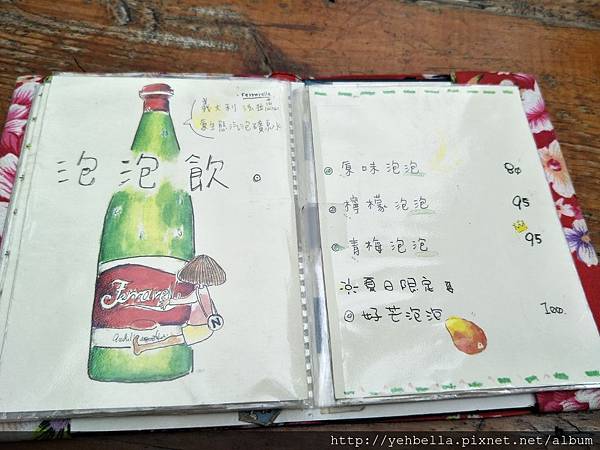 Ferrarelle
義大利 法拉
原生態汽泡礦泉水
泡泡飲
Ferrarel
N
原味泡泡 80
檸檬泡泡 95
青梅泡泡 95
夏日限定
好芒泡泡 100
http://yehbella.pixnet.net/album